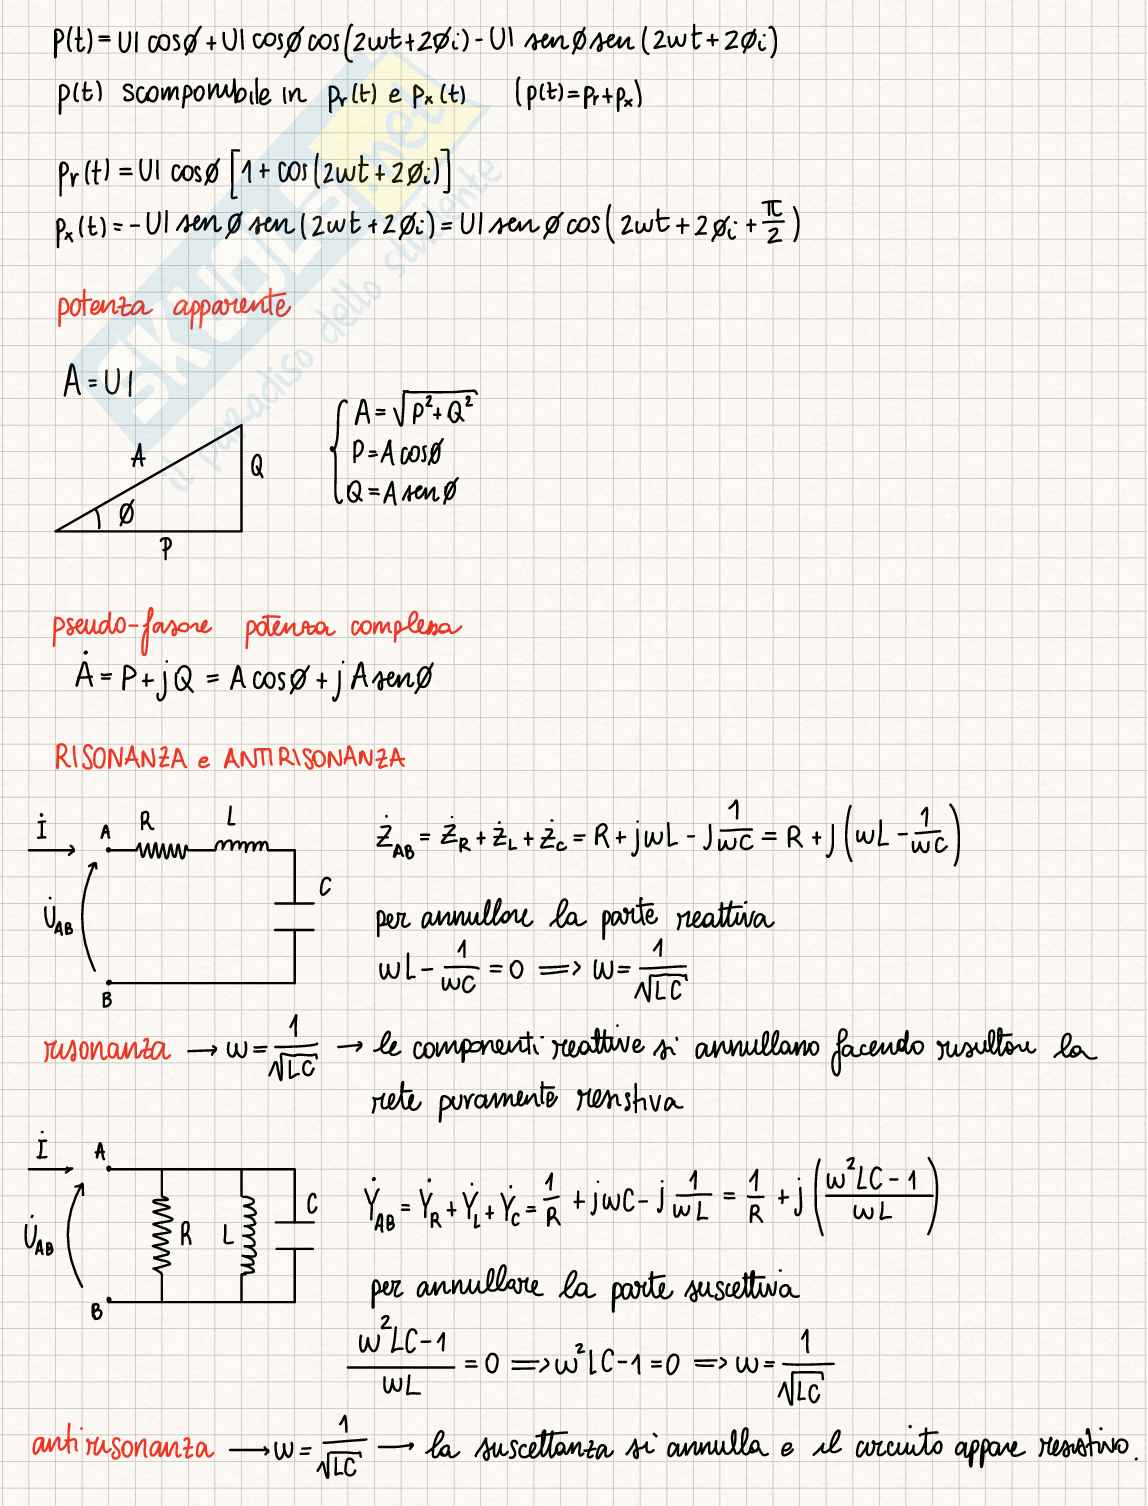 p(t) = UI cosø + UI cosø cos(2wt + 2øi) - UI senø sen(2wt + 2øi)
p(t) scomponibile in pr(t) e px(t) (p(t) = pr + px)
pr(t) = UI cosø [1 + cos(2wt + 2øi)]
px(t) = -UI senø sen(2wt + 2øi) = UI senø cos(2wt + 2øi + π/2)
potenza apparente
A = UI
A = √(P² + Q²)
P = A cosø
Q = A senø
A
Q
ø
P
pseudo-fasore potenza complessa
Ȧ = P + jQ = A cosø + j A senø
RISONANZA e ANTIRISONANZA
İ A R L C U̇AB B
ŻAB = ŻR + ŻL + ŻC = R + jwL - J 1/wC = R + J (wL - 1/wC)
per annullare la parte reattiva
wL - 1/wC = 0 => w = 1/√LC
risonanza → w = 1/√LC → le componenti reattive si annullano facendo risultare la
rete puramente resistiva
İ A R L C U̇AB B
ẎAB = ẎR + ẎL + ẎC = 1/R + jwC - j 1/wL = 1/R + j ((w²LC - 1)/wL)
per annullare la parte suscettiva
(w²LC - 1)/wL = 0 => w²LC - 1 = 0 => w = 1/√LC
antirisonanza → w = 1/√LC → la suscettanza si annulla e il circuito appare resistivo.
SKUOLA.net
il paradiso dello studente